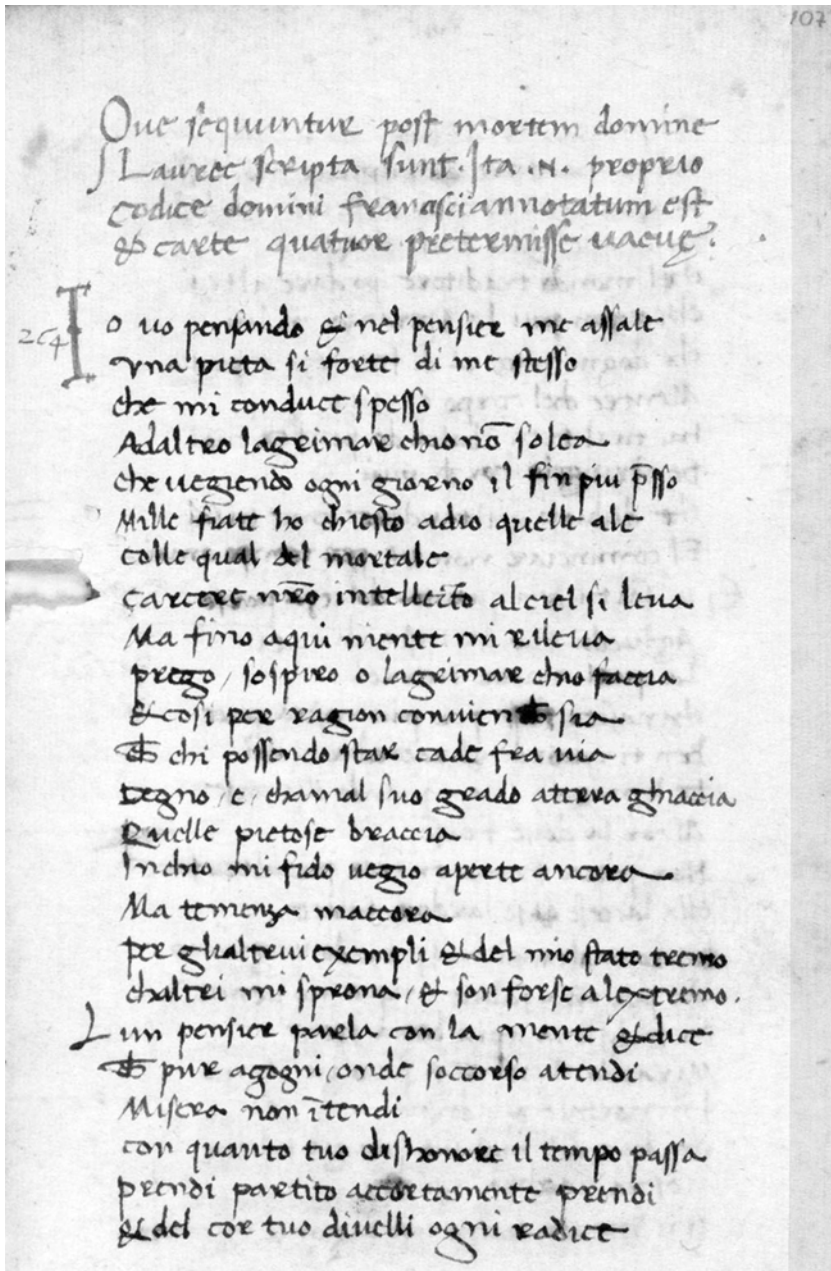 107
Que sequuntur post mortem domine
Lauree scripta sunt. Ita .N. proprio
codice domini francisci annotatum est
& carte quatuor pretermisse uacuę.
264
Io uo pensando & nel pensier me assale
vna pieta si forte di me stesso
che mi conduce spesso
Adaltro lagrimar chio nō solea
che uegiendo ogni giorno il fin piu p̄sso
Mille fiate ho chiesto adio quelle ale
colle qual del mortale
carcere nr̄o intellecto alciel si leua
Ma fino aqui niente mi rileua
prego / sospiro o lagrimar chio faccia
& cosi per ragion conuien sia
chi possendo star cade fra uia
Degno / e / chamal suo grado atterra ghiaccia
Quelle pietose braccia
Inchio mi fido uegio aperte ancora
Ma temenza maccora
per glialtrui exempli & del mio stato tremo
chaltri mi sprona / & son forse alextremo.
Lun pensier parla con la mente & dice
pur agogni / onde soccorso atendi
Misera non ītendi
con quanto tuo dishonore il tempo passa
prendi partito accortamente prendi
& del cor tuo diuelli ogni radice